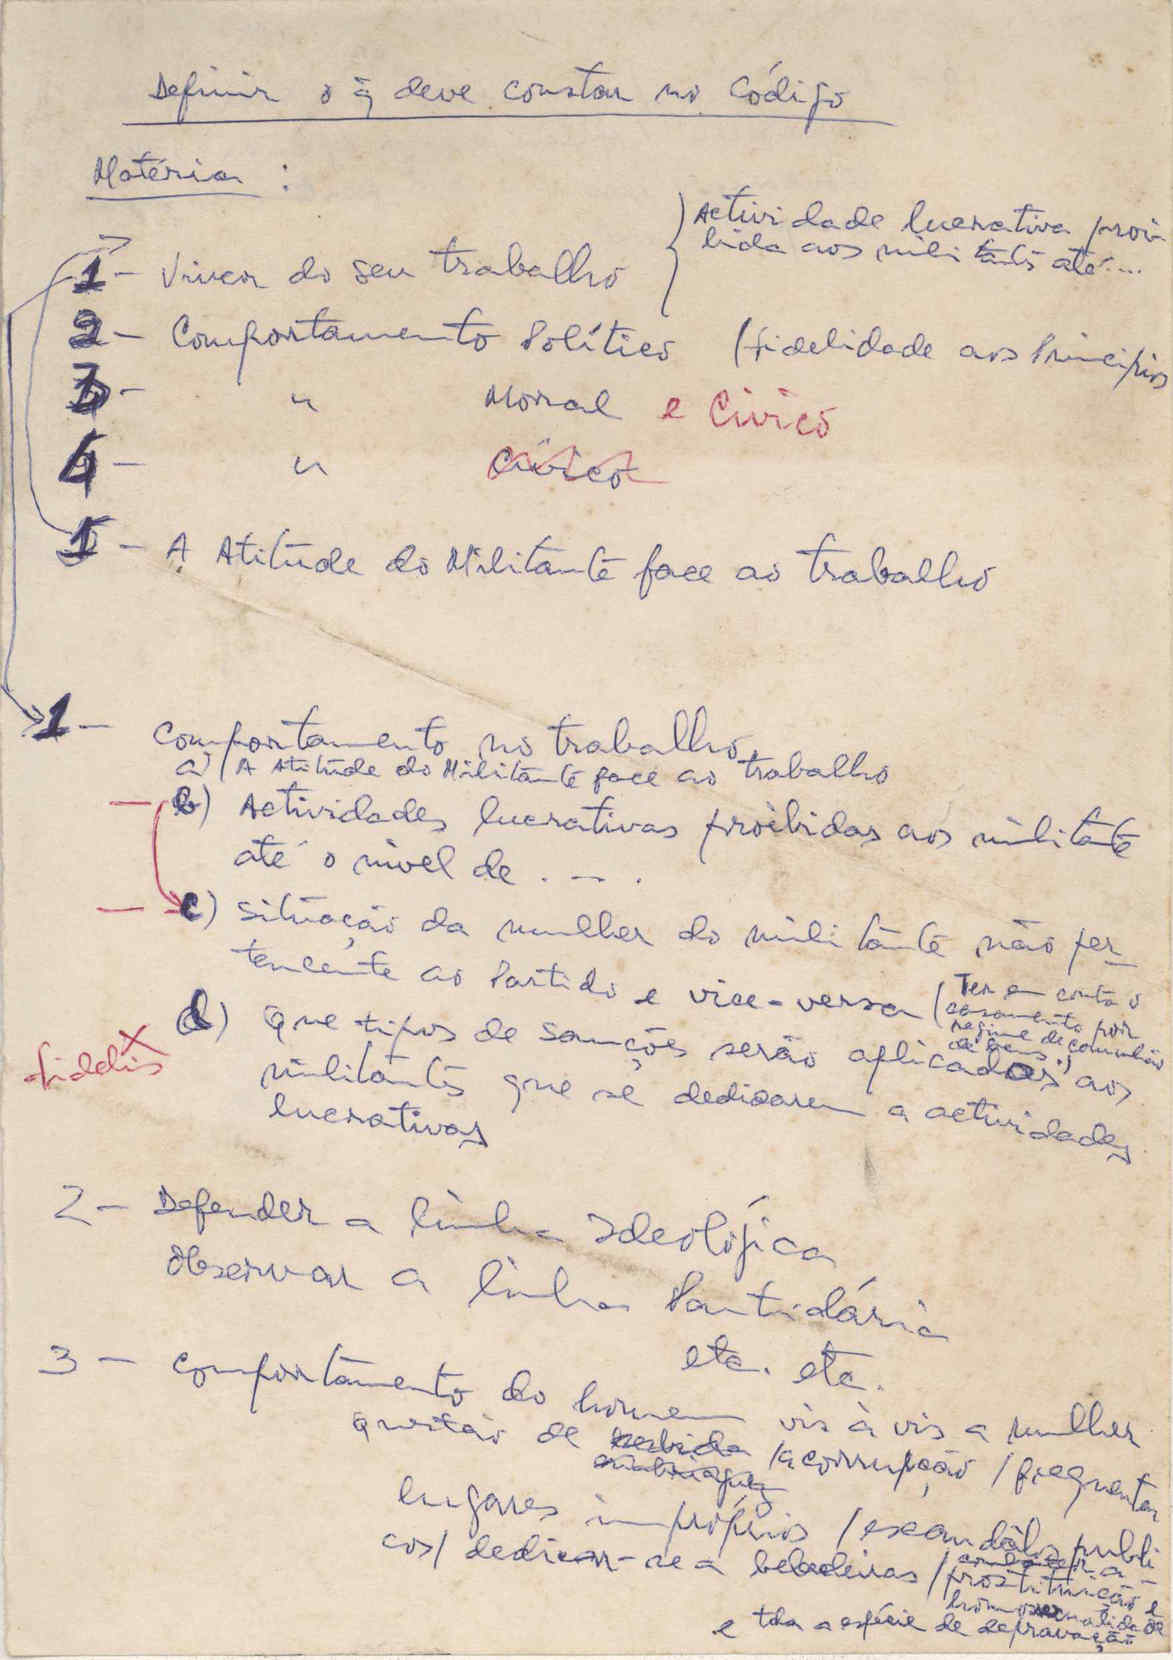 Definir o q̃ deve constar no Código
Matéria :
1 - Viver do seu trabalho
Actividade lucrativa proi-
bida aos militantes até....
2 - Comportamento Político (fidelidade aos Princípios
3 - " Moral e Cívico
4 - " Cívico
1 - A Atitude do Militante face ao trabalho
1 - Comportamento no trabalho
a) A Atitude do Militante face ao trabalho
b) Actividades lucrativas proibidas aos militante
até o nível de . - .
c) Situação da mulher do militante não per-
tencente ao Partido e vice-versa (Ter em conta o
casamento por
regime de comunhão
de bens)
d) Que tipos de sanções serão aplicados aos
fidelis X
militantes que se dedicarem a actividades
lucrativas
2 - Defender a linha Ideológica
Observar a linha Partidária
etc. etc.
3 - Comportamento do homem vis à vis a mulher
questão de bebida /a corrupção / freqüentar
embriaguez
lugares impróprios / escandálos públi
cos/ dedicar-se a bebedeiras / combater a -
prostituição e
homosexualidade
e tda a espécie de depravação